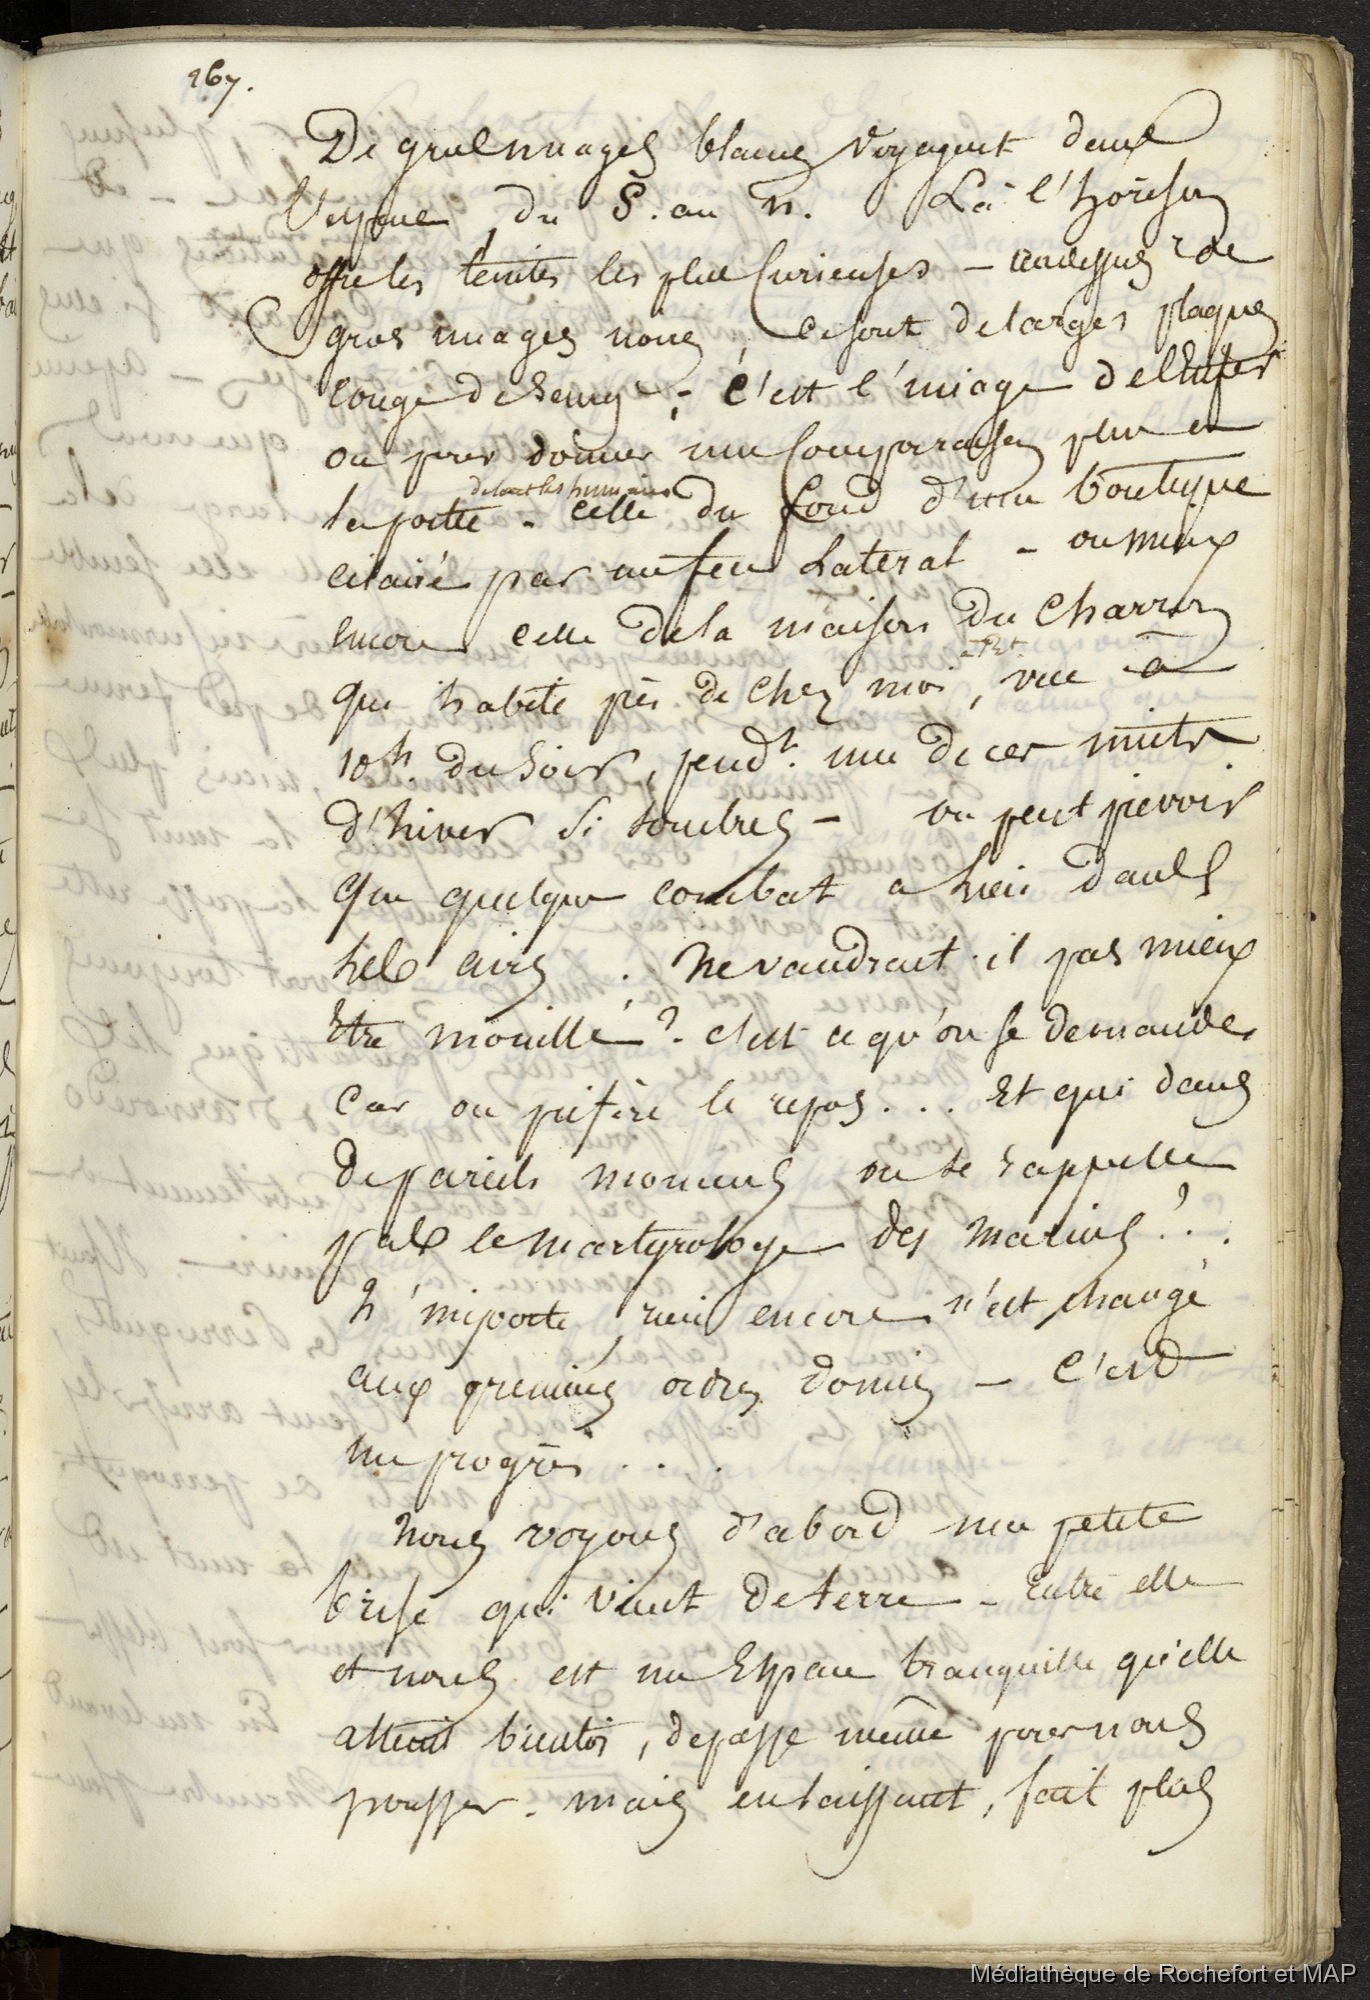 167.
De gros nuages blancs voyagent dans
l'espace du S. au N. Là l'horison
offre les teintes les plus curieuses - au dessus de
gros nuages noirs, ce sont de larges plaques
rouge de sang - ; c'est l'image de l'Enfer
ou pour donner une comparaison plus à
de tout les humains
la portée - celle du fond d'une boutique
éclairé par un feu lateral - ou mieux
encore celle de la maison du charron
qui habite près de chez moi, vue à
10h. du soir, pendt. une de ces nuits
d'hiver si sombres - on peut prévoir
que quelque combat a lieu dans
les airs. Ne vaudrait-il pas mieux
être mouillé ? c'est ce qu'on se demande
car on préfère le repos... Et qui dans
de pareils momens ne se rappelle
pas le martyrologe des marins ?..
n'importe, rien encore n'est changé
aux premiers ordres donnés - C'est
un progrès...
Nous voyons d'abord une petite
brise qui vient de terre - Entre elle
et nous est un Espace tranquille qu'elle
atteint bientôt, depasse même pour nous
pousser - mais en laissant, soit plus
Médiathèque de Rochefort et MAP